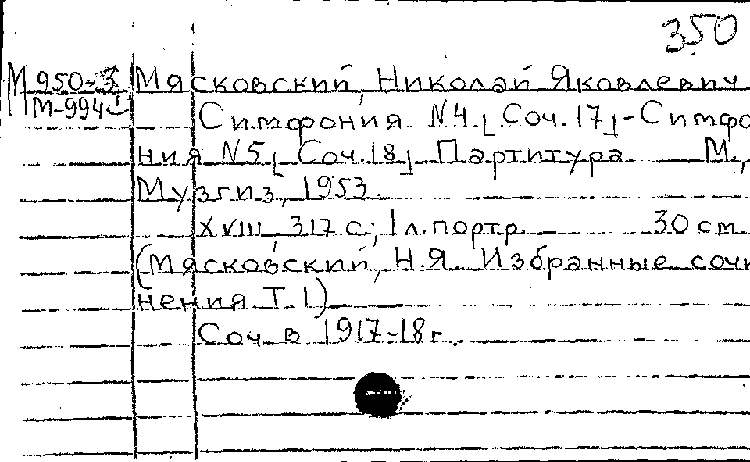 350
М950-3 Мясковский, Николай Яковлевич
М-994 Симфония N4, Соч.17,-Симфо
ния N5, Соч.18, Партитура М.,
Музгиз, 1953.
XVIII, 317 с., 1 л.портр. 30 см
(Мясковский, Н.Я. Избранные сочи
нения. Т.1)
Соч. в 1917-18 г.